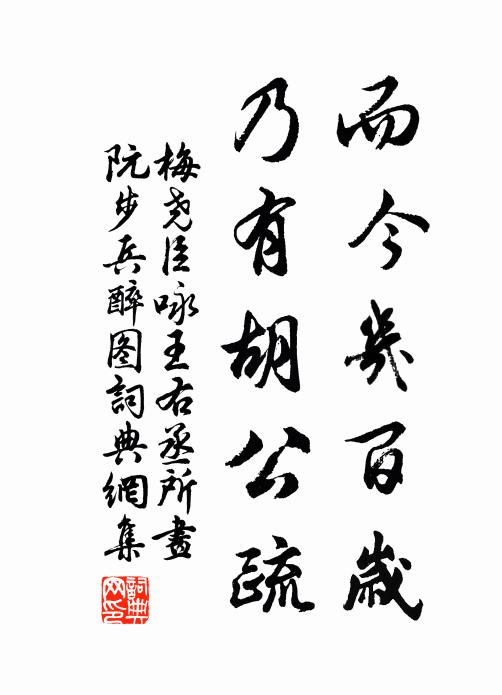 而今几百歲
乃有胡公疏
梅堯臣咏王右丞所畫
阮步兵醉图詞典網集
詞典网印